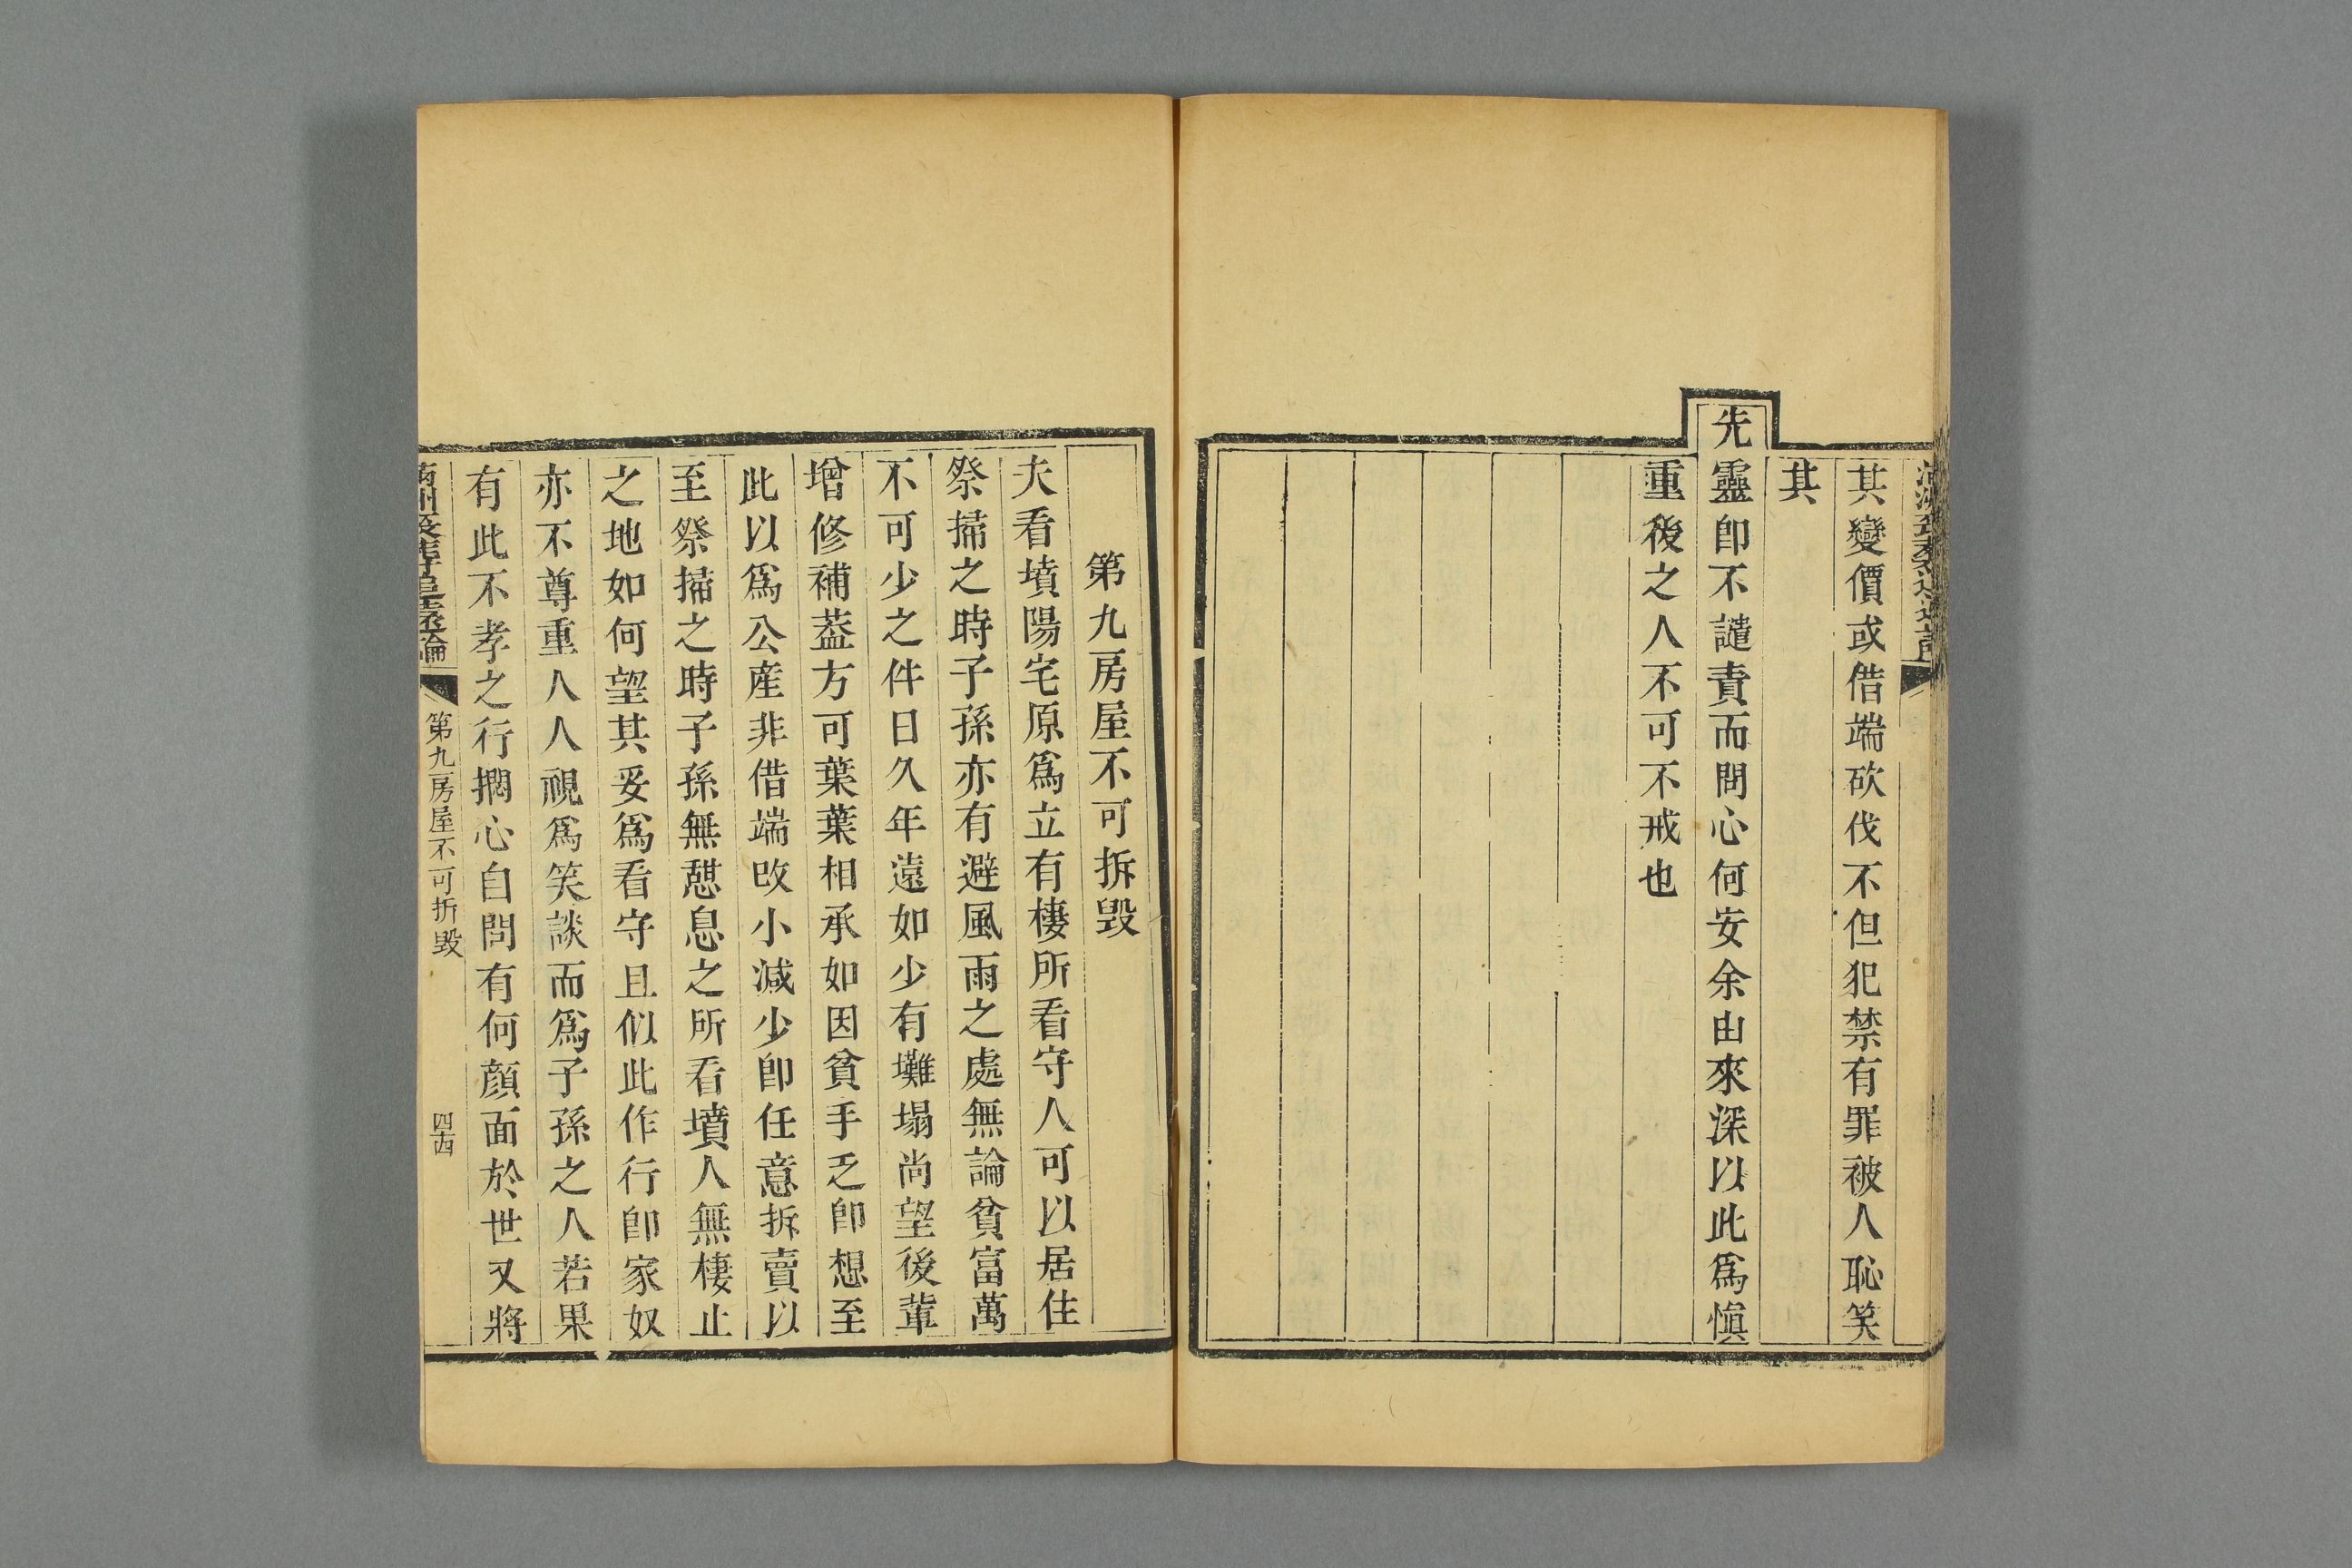 其變價或借端砍伐不但犯禁有罪被人恥笑
其
先靈卽不譴責而問心何安余由來深以此爲愼
重後之人不可不戒也
第九房屋不可拆毀
夫看墳陽宅原爲立有棲所看守人可以居住
祭掃之時子孫亦有避風雨之處無論貧富萬
不可少之件日久年遠如少有壩塌尚望後輩
增修補葢方可葉葉相承如因貧手乏卽想至
此以爲公産非借端改小減少卽任意拆賣以
至祭掃之時子孫無憇息之所看墳人無棲止
之地如何望其妥爲看守且似此作行卽家奴
亦不尊重人人視爲笑談而爲子孫之人若果
有此不孝之行捫心自問有何顔面於世又將
第九房屋不可折毀
四十四